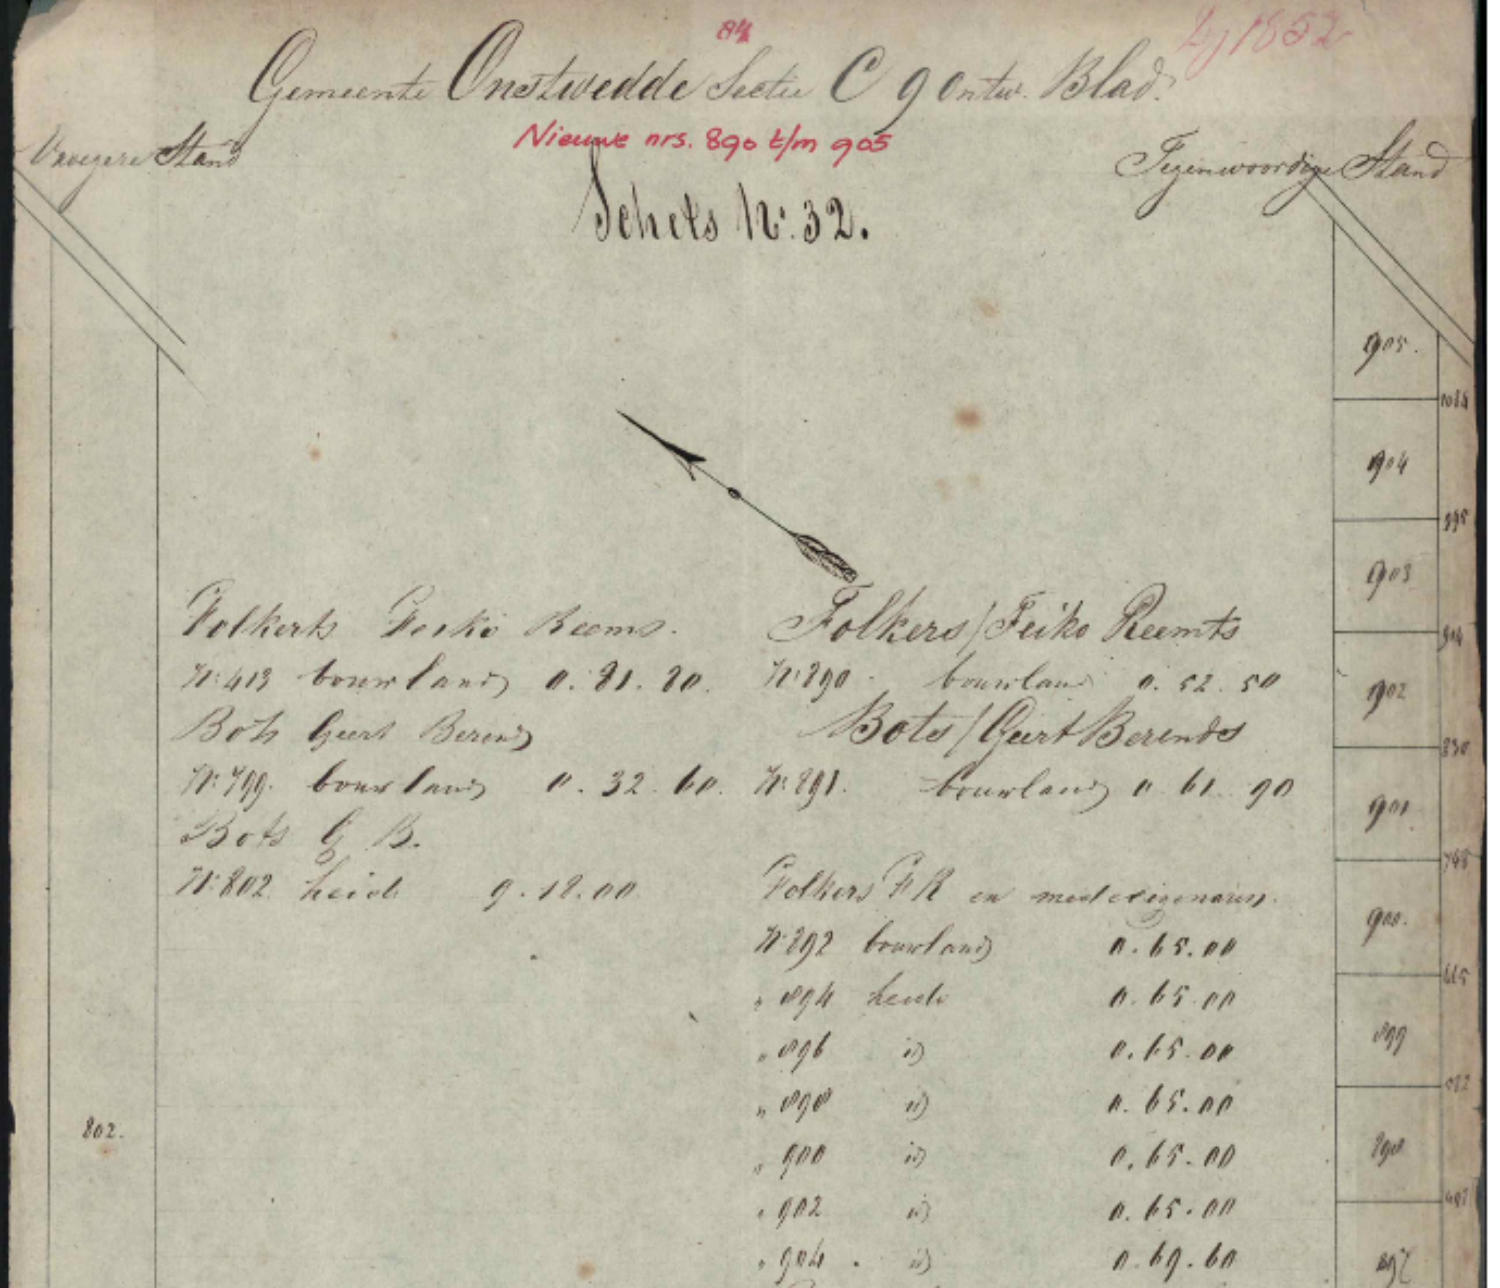 84
Dj 1852
Gemeente Onstwedde Sectie C 9 Ontw. Blad.
Nieuwe nrs. 890 t/m 905
Vroegere Stand
Tegenwoordige Stand
Schets N°. 32.
Folkerts Feiko Reems.
N° 413 bouwland 0. 81. 80.
Bots Geert Berends
N° 799. bouwland 0. 32. 60.
Bots G B.
N° 802 heide 9. 18. 00.
802.
Folkers / Feiko Reemts
N° 890 bouwland 0. 52. 50
Bots / Geert Berends
N° 891. bouwland 0 61. 90
Folkers F R en medeeigenaren.
N° 892 bouwland 0. 65. 00
" 894 heide 0. 65. 00
" 896 id 0. 65. 00
" 898 id 0. 65. 00
" 900 id 0. 65. 00
" 902 id 0. 65. 00
" 904. id 0. 69. 60
905.
904
903
902
901
900.
899
898
897
830